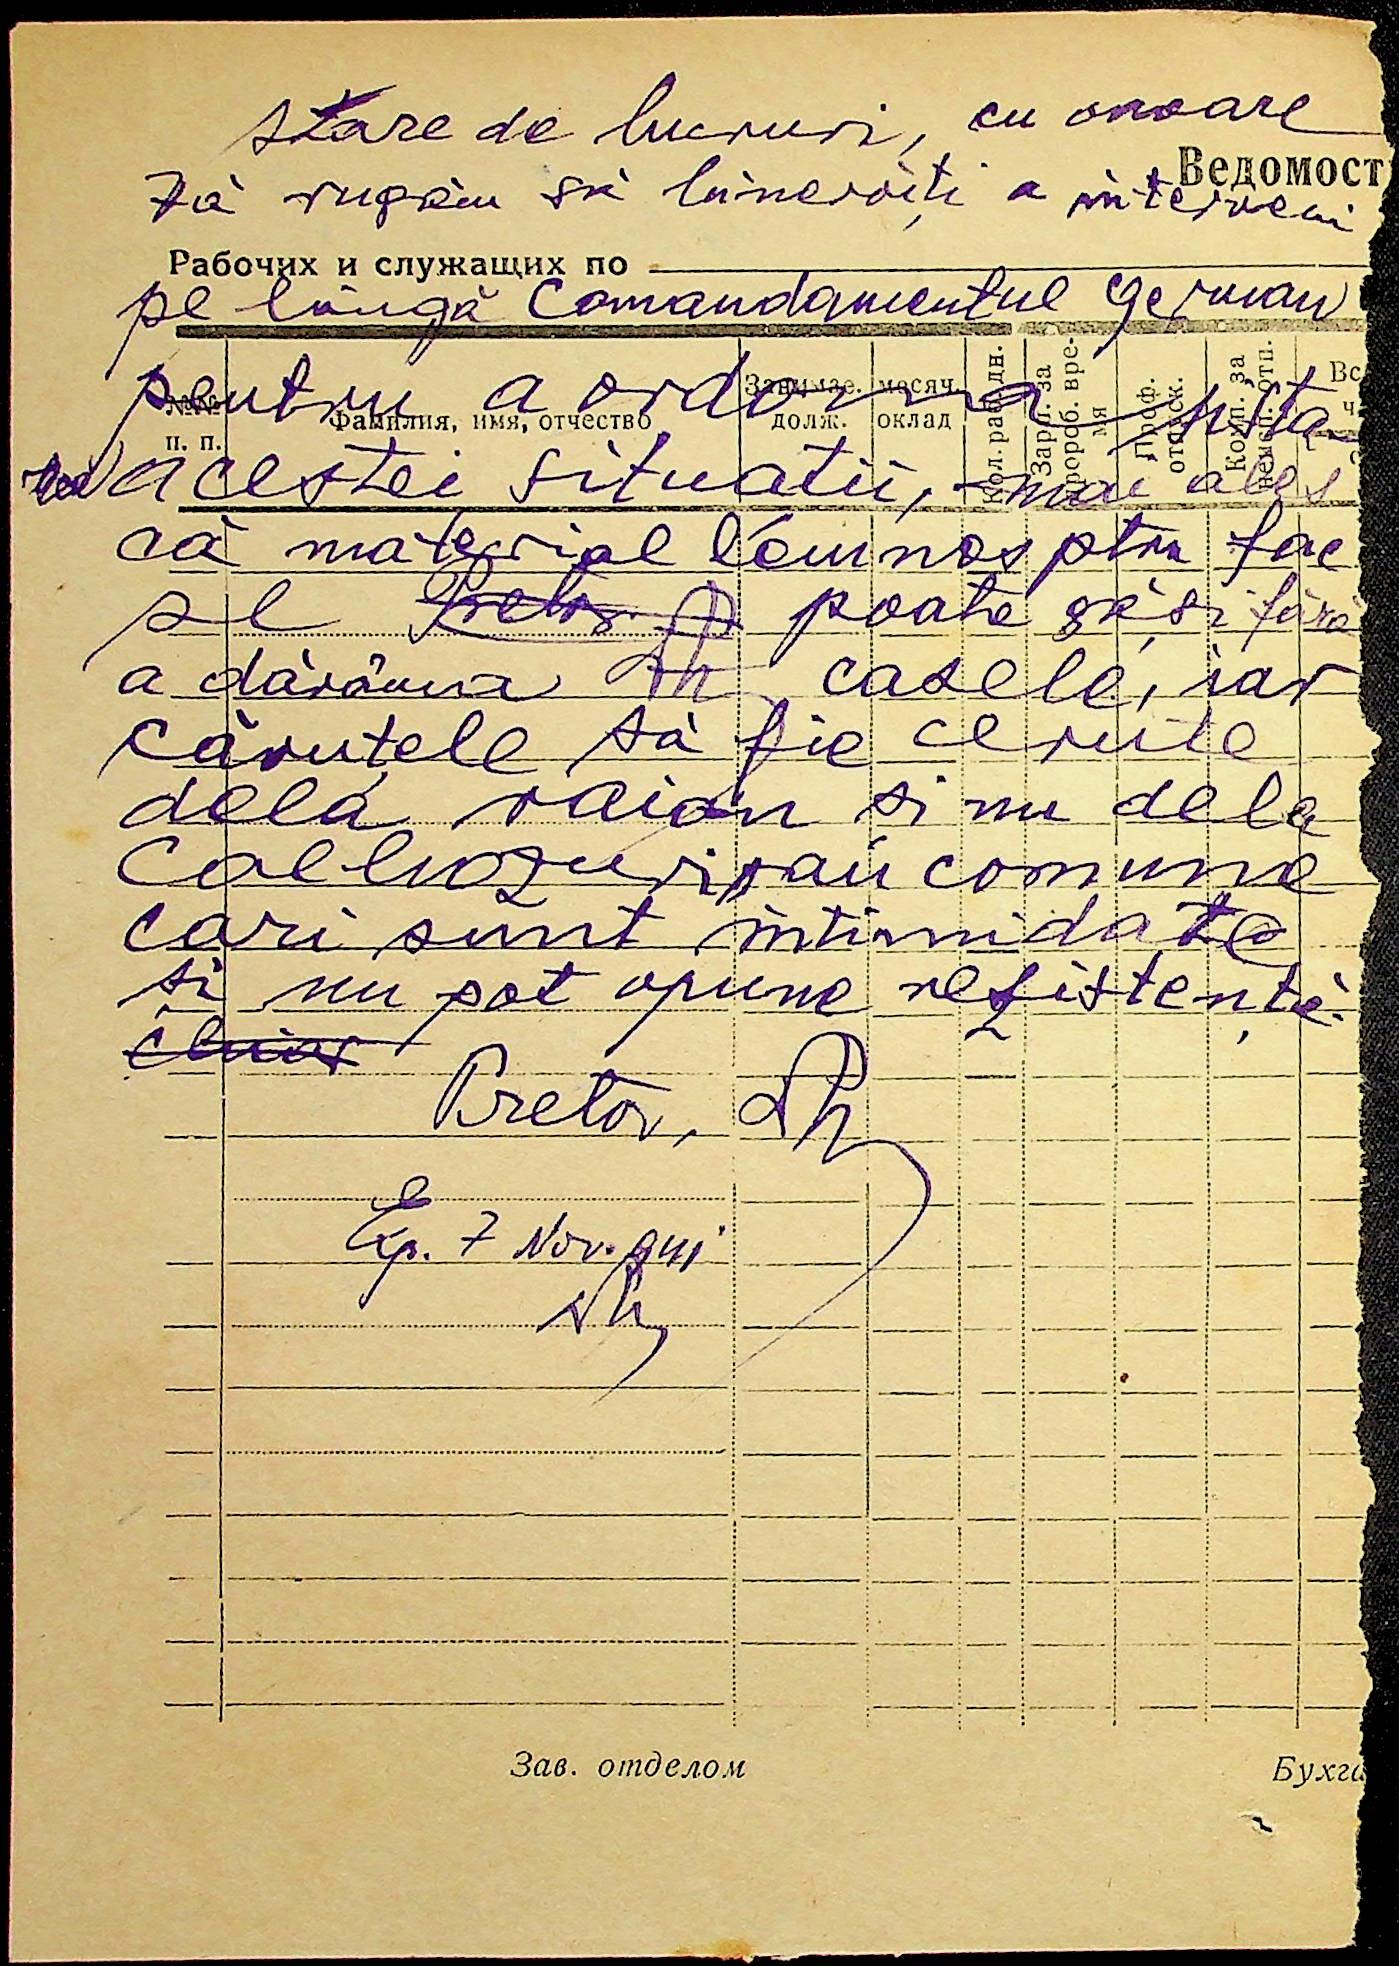 stare de lucruri, cu onoare
Ведомост
Vă rugăm să binevoiți a interveni
Рабочих и служащих по
pe lângă Comandamentul German
pentru a ordona
№№ п. п.
Фамилия, имя, отчество
Занимае. долж.
месяч. оклад
Кол. раб. дн.
Зараб. за
вре-
мя
Проф.
Комп. за
отп.
Вс
acestei situatii, mai ales
că material lemnos ptru foc
se Pretor poate găsi fără
a dărâma casele, iar
căruțele să fie cerute
dela raion si nu dela
Colhozuri sau comune
cari sunt intimidate
si nu pot opune rezistență.
chiar
Pretor,
Exp. 7 Nov. 941
Зав. отделом
Бухга